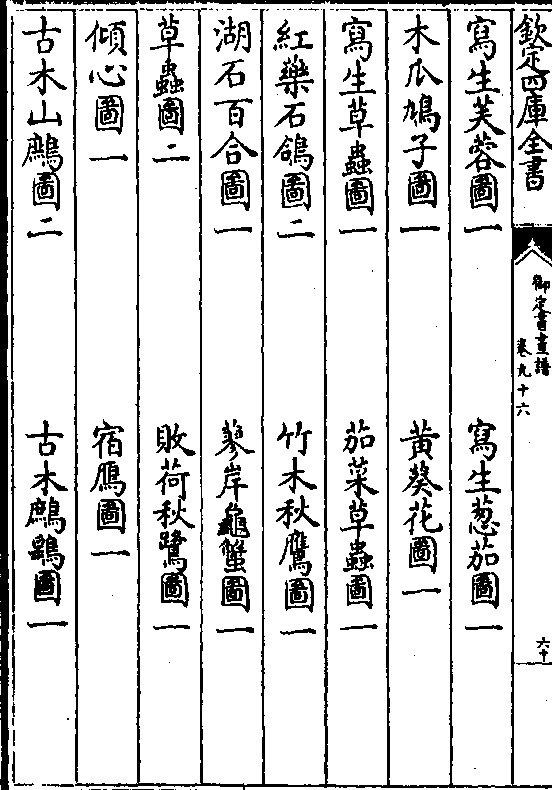 欽定四庫全書
御定書畫譜
卷九十六
六十
寫生芙蓉圖一　寫生葱茄圖一
木瓜鳩子圖一　黃葵花圖一
寫生草蟲圖一　茄菜草蟲圖一
紅藥石鴿圖二　竹木秋鷹圖一
湖石百合圖一　蓼岸龜蟹圖一
草蟲圖二　敗荷秋鷺圖一
傾心圖一　宿鴈圖一
古木山鷓圖二　古木鷓鶪圖一